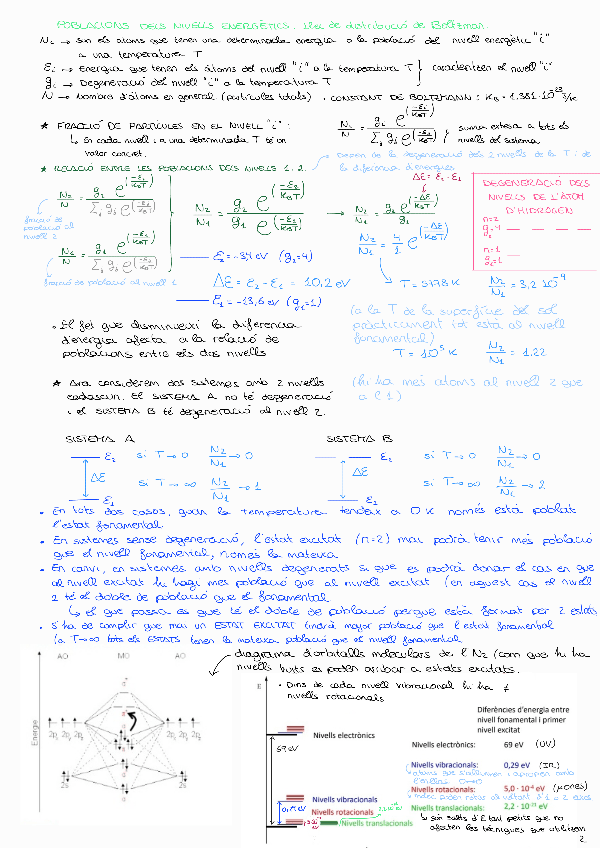 POBLACIONS DELS NIVELLS ENERGÈTICS. Llei de distribució de Boltzman.
Ni → són els àtoms que tenen una determinada energia o la població del nivell energètic "i"
a una temperatura T
εi → Energia que tenen els àtoms del nivell "i" a la temperatura T } caracteritzen el nivell "i"
gi → Degeneració del nivell "i" a la temperatura T
N → Nombre d'àtoms en general (partícules totals) · CONSTANT DE BOLTZMANN: KB = 1.381·10^-23 J/K
★ FRACCIÓ DE PARTÍCULES EN EL NIVELL "i":
↳ En cada nivell i a una determinada T té un
valor concret.
Ni/N = gi e^(-εi/KBT) / Σj gj e^(-εj/KBT) } suma extesa a tots els
nivells del sistema
★ RELACIÓ ENTRE LES POBLACIONS DELS NIVELLS 1, 2.
→ Depèn de la degeneració dels 2 nivells de la T i de
la diferència d'energies
ΔE = ε2 - ε1
N2/N = g2 e^(-ε2/KBT) / Σj gj e^(-εj/KBT)
N2/N1 = g2 e^(-ε2/KBT) / g1 e^(-ε1/KBT) → N2/N1 = g2/g1 e^(-ΔE/KBT)
fracció de
població al
nivell 2
N1/N = g1 e^(-ε1/KBT) / Σj gj e^(-εj/KBT)
fracció de població al nivell 1
N2/N1 = 4/1 e^(-ΔE/KBT)
DEGENERACIÓ DELS
NIVELLS DE L'ÀTOM
D'HIDROGEN
n=2
g2=4
n=1
g1=1
E2 = -3,4 eV (g2=4)
ΔE = E2 - E1 = 10,2 eV
E1 = -13,6 eV (g1=1)
T = 5798 K N2/N1 = 3,2 10^-4
(a la T de la superfície del sol
pràcticament tot està al nivell
fonamental)
T = 10^5 K N2/N1 = 1.22
(hi ha més àtoms al nivell 2 que
a l'1)
• El fet que disminueixi la diferència
d'energia afecta a la relació de
poblacions entre els dos nivells
★ Ara considerem dos sistemes amb 2 nivells
cadascun. El SISTEMA A no té degeneració
i el SISTEMA B té degeneració al nivell 2.
SISTEMA A
ε2 si T→0 N2/N1 → 0
ΔE
si T→∞ N2/N1 → 1
ε1
SISTEMA B
ε2 si T→0 N2/N1 → 0
ΔE
si T→∞ N2/N1 → 2
ε1
• En tots dos casos, quan la temperatura tendeix a 0 K només està poblat
l'estat fonamental
• En sistemes sense degeneració, l'estat excitat (n=2) mai podrà tenir més població
que el nivell fonamental, només la mateixa
• En canvi, en sistemes amb nivells degenerats sí que es podria donar el cas en que
al nivell excitat hi hagi més població que al nivell excitat (en aquest cas al nivell
2 té el doble de població que el fonamental
↳ el que passa és que té el doble de població perquè està format per 2 estats
• S'ha de complir que mai un ESTAT EXCITAT tindrà major població que l'estat fonamental
(a T→∞ tots els ESTATS tenen la mateixa població que el nivell fonamental
diagrama d'orbitals moleculars de l'N2 (com que hi ha
nivells buits es poden arribar a estats excitats.
AO MO AO
Energie
2px 2py 2pz
2px 2py 2pz
2s
2s
E
• Dins de cada nivell vibracional hi ha ≠
nivells rotacionals
Nivells electrònics
69 eV
Nivells vibracionals
Nivells rotacionals
Nivells translacionals
Diferències d'energia entre
nivell fonamental i primer
nivell excitat
Nivells electrònics: 69 eV (UV)
Nivells vibracionals: 0,29 eV (IR)
Nivells rotacionals: 5,0 · 10^-4 eV (μONES)
Nivells translacionals: 2,2 · 10^-21 eV
↳ són salts d'E tant petits que no
afecten les tècniques que utilitzem
2